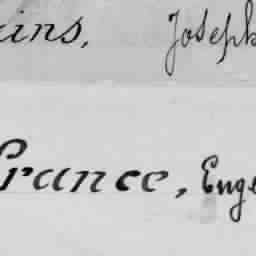 ins, Joseph
France, Euge